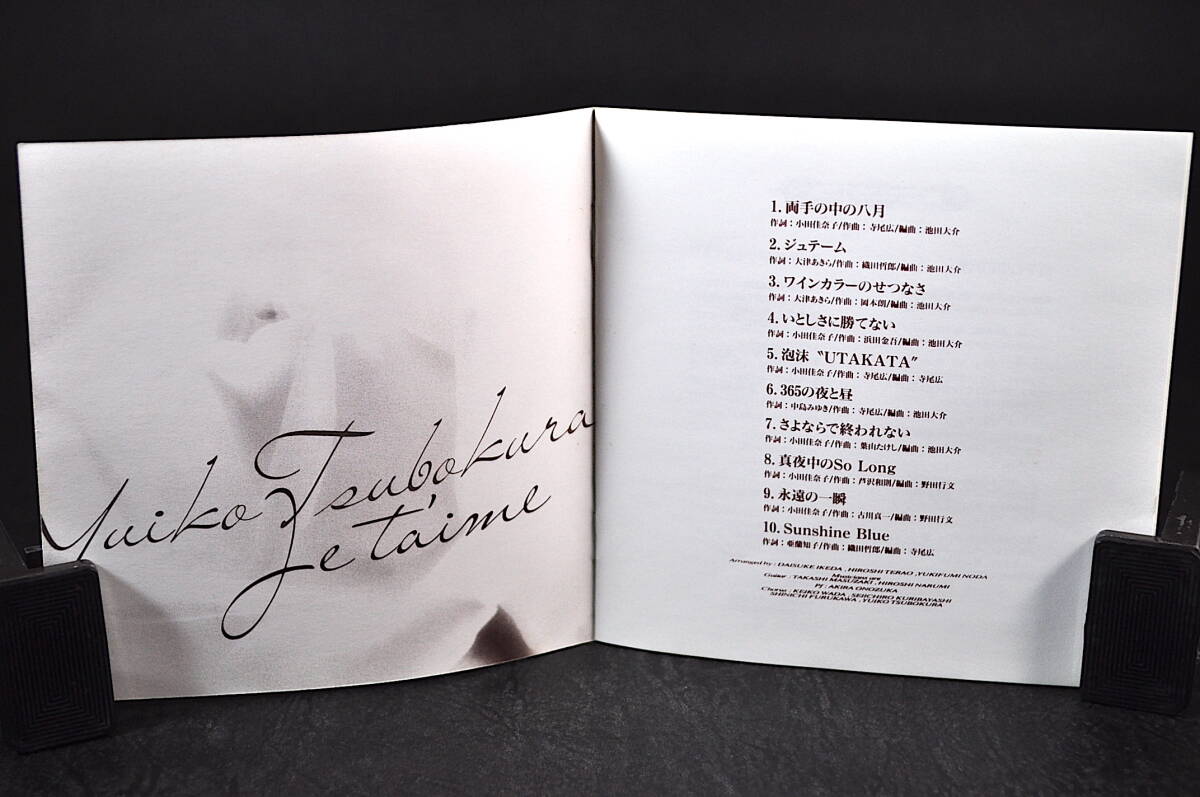 Yuiko Tsubokura
Je t'aime
1. 両手の中の八月
作詞:小田佳奈子/作曲:寺尾広/編曲:池田大介
2. ジュテーム
作詞:大津あきら/作曲:織田哲郎/編曲:池田大介
3. ワインカラーのせつなさ
作詞:大津あきら/作曲:岡本朗/編曲:池田大介
4. いとしさに勝てない
作詞:小田佳奈子/作曲:浜田金吾/編曲:池田大介
5. 泡沫〝UTAKATA〟
作詞:小田佳奈子/作曲:寺尾広/編曲:寺尾広
6. 365の夜と昼
作詞:中島みゆき/作曲:寺尾広/編曲:池田大介
7. さよならで終われない
作詞:小田佳奈子/作曲:葉山たけし/編曲:池田大介
8. 真夜中のSo Long
作詞:小田佳奈子/作曲:芦沢和則/編曲:野田行文
9. 永遠の一瞬
作詞:小田佳奈子/作曲:古川真一/編曲:野田行文
10. Sunshine Blue
作詞:亜蘭知子/作曲:織田哲郎/編曲:寺尾広
Arranged by : DAISUKE IKEDA , HIROSHI TERAO , YUKIFUMI NODA
Musicians are
Guitar : TAKASHI MASUZAKI , HIROSHI NARUMI
Pf : AKIRA ONOZUKA
Chorus : KEIKO WADA , SEIICHIRO KURIBAYASHI
SHINICHI FURUKAWA , YUIKO TSUBOKURA